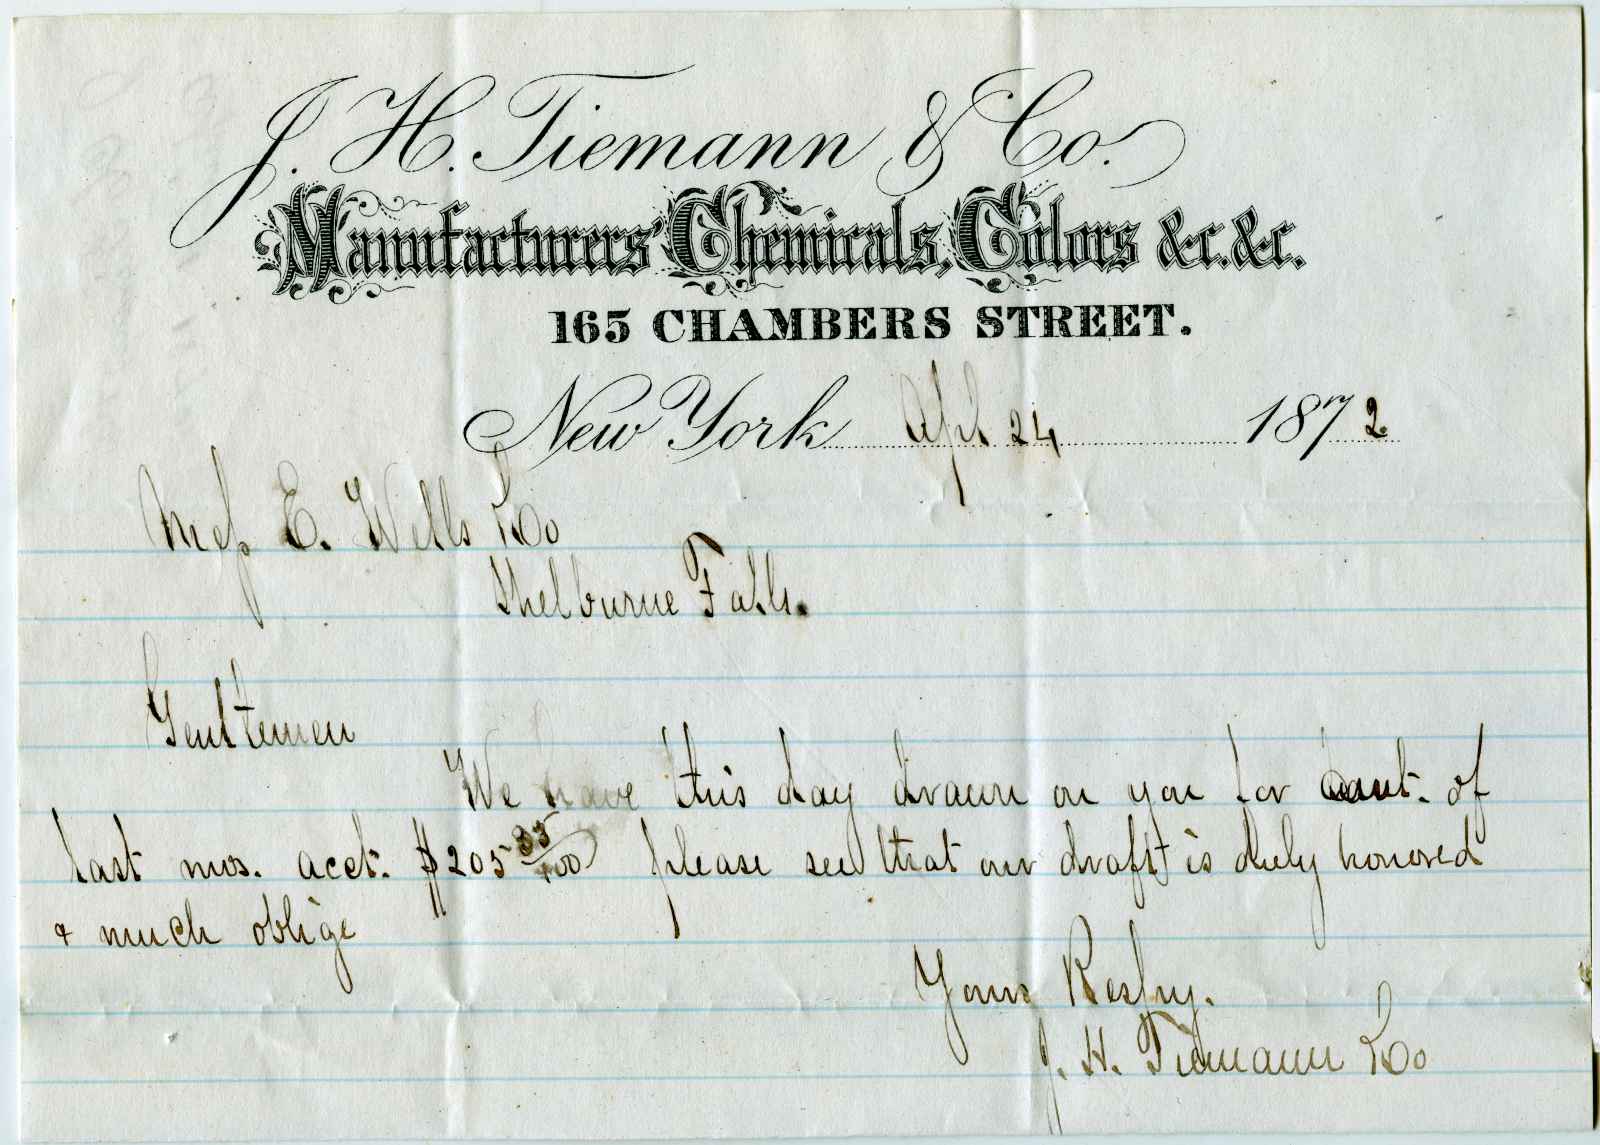 J. H. Tiemann & Co.
Manufacturers' Chemicals, Colors &c. &c.
165 CHAMBERS STREET.
New York Apl 24 1872
Mess E. Wells & Co
Shelburne Falls.
Gentlemen
We have this day drawn on you for amt. of
last mos. acct. $205 35/100 please see that our draft is duly honored
& much oblige
Yours Respy.
J. H. Tiemann & Co